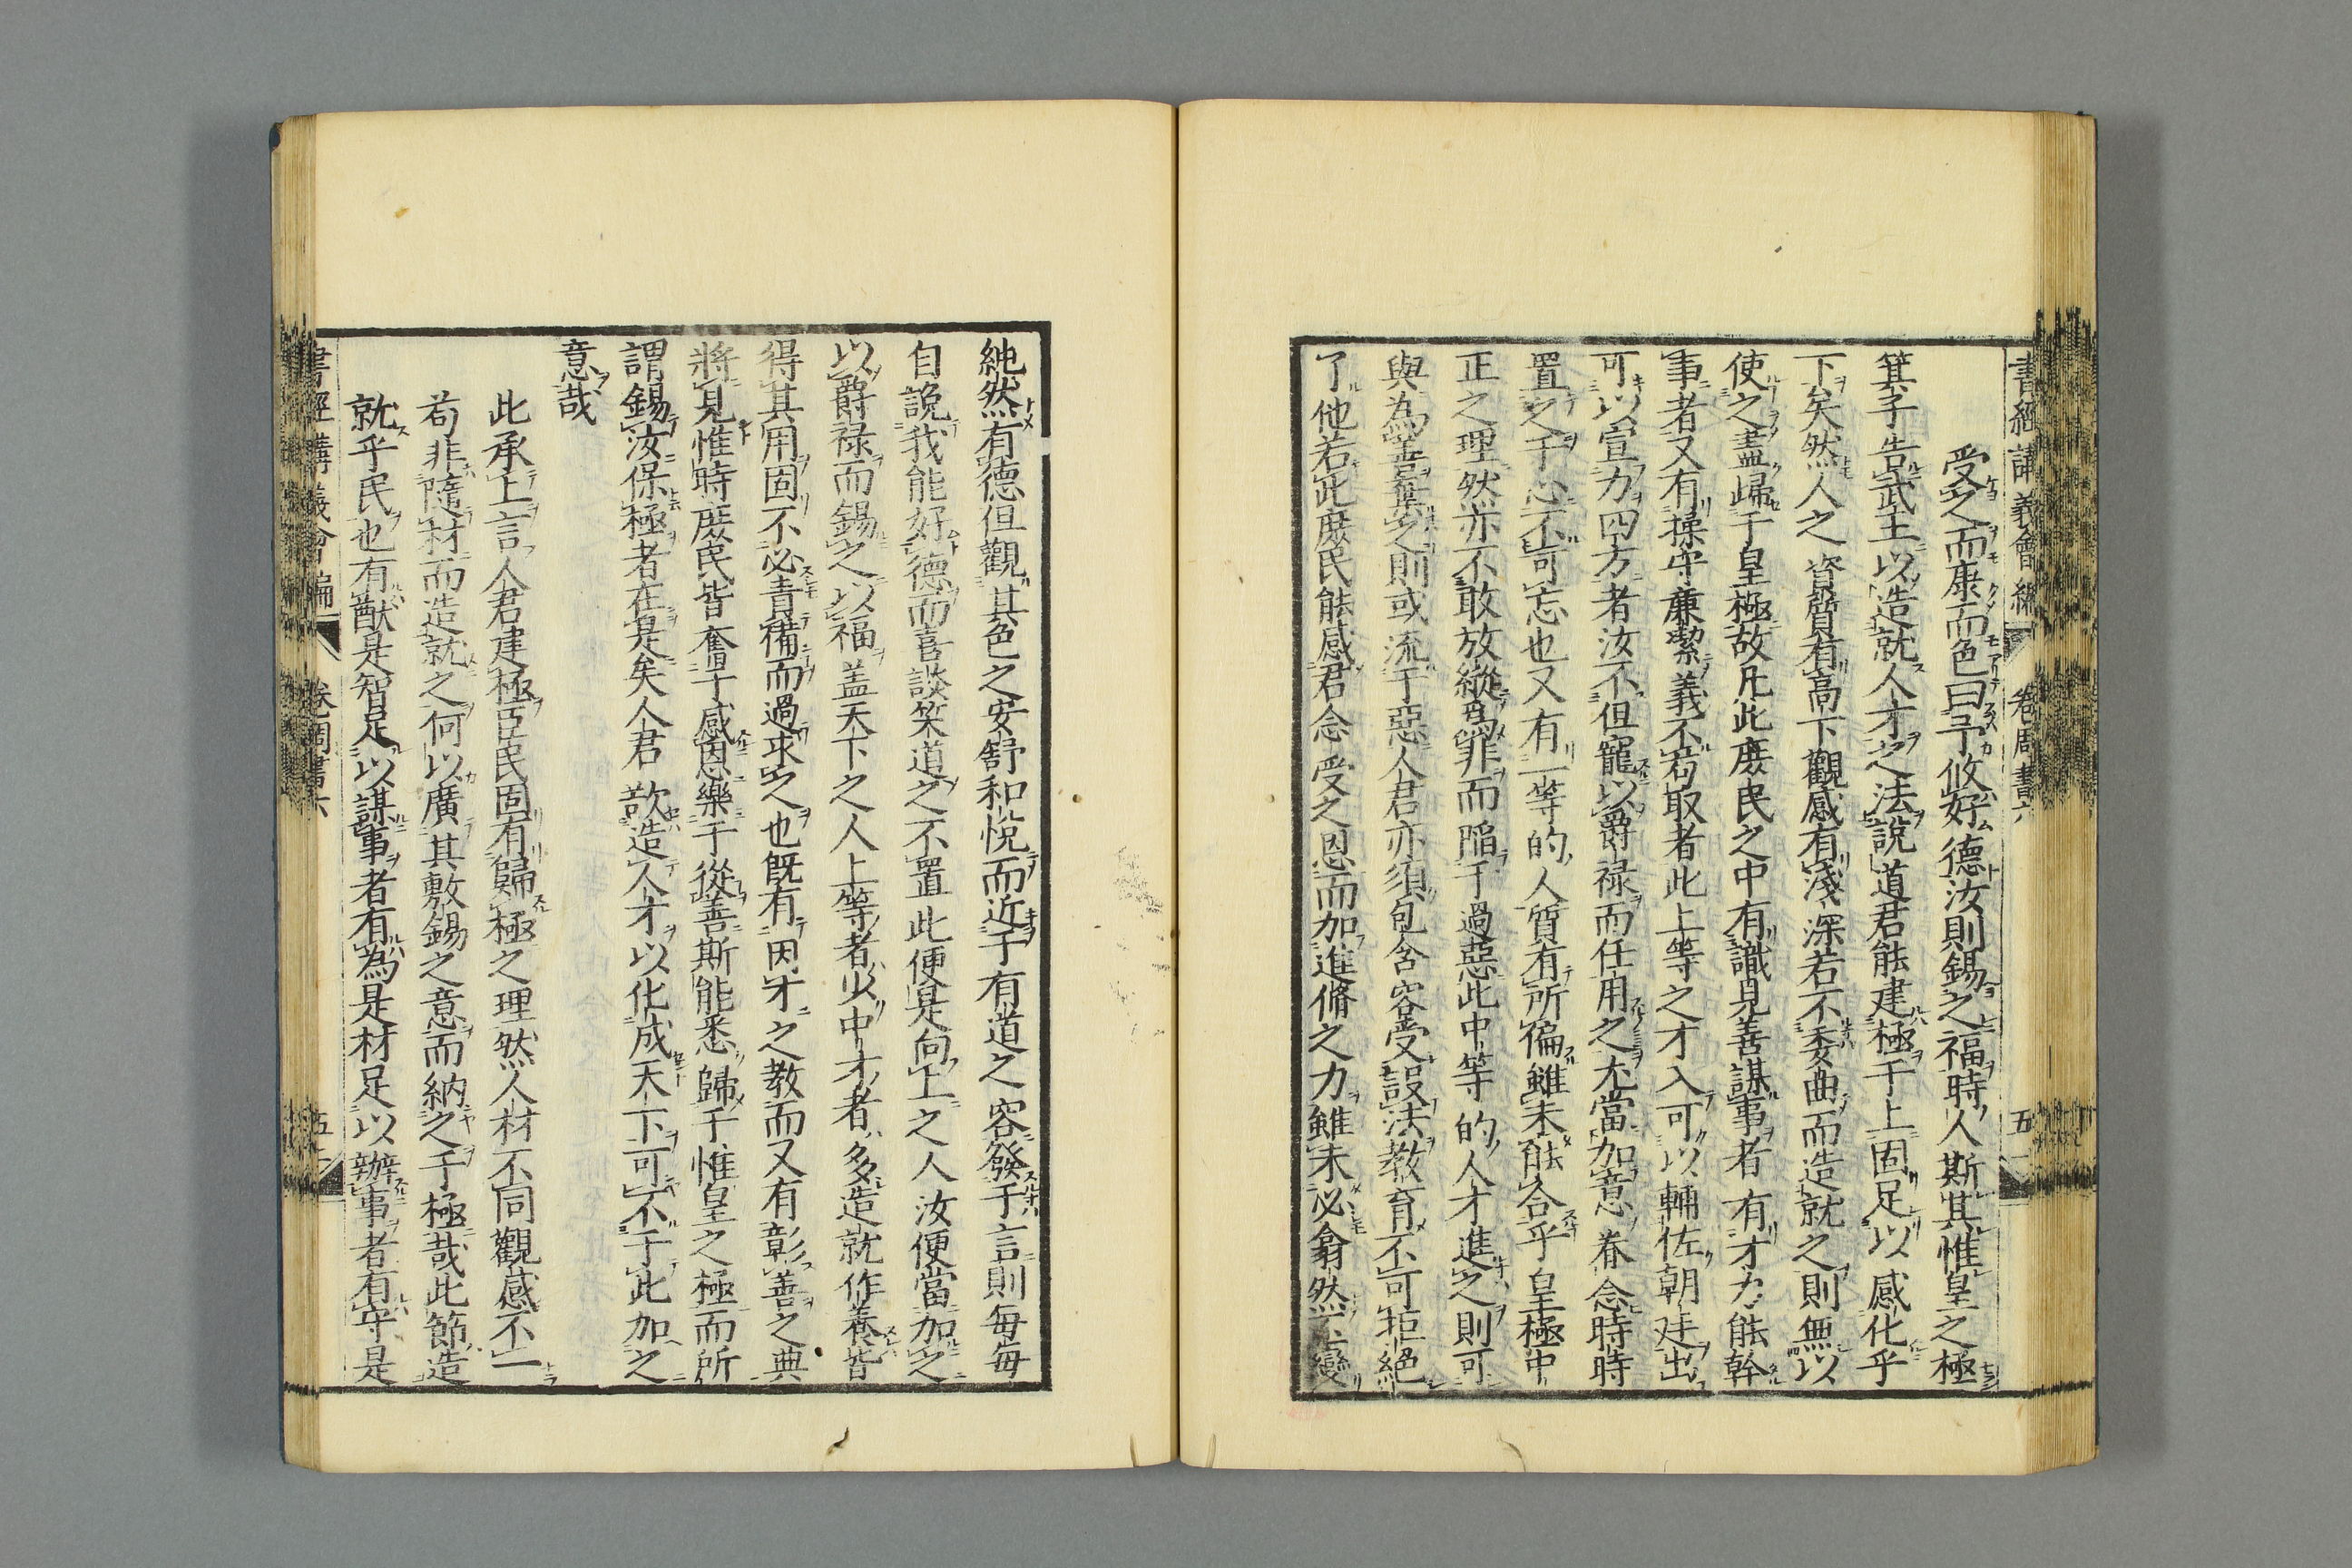 書經講義會編　卷周書六　五
受之而康而色曰予攸好德汝則錫之福時人斯其惟皇之極
箕子告武王以造就人才之法說道君能建極于上固足以感化乎
下矣然人之資質有高下觀感有淺深若不委曲而造就之則無以
使之盡歸于皇極故凡此庶民之中有識見善謀事者有才力能幹
事者又有操守廉潔義不苟取者此上等之才入可以輔佐朝廷出
可以宣力四方者汝不但寵以爵禄而任用之尤當加意眷念時時
置之于心不可忘也又有一等的人質有所偏雖未能合乎皇極中
正之理然亦不敢放縱爲罪而陷于過惡此中等的人才進之則可
與為善棄之則或流于惡人君亦須包含容受設法教育不可拒絕
了他若此庶民能感君念受之恩而加進脩之力雖未必翕然丕變
純然有德但觀其色之安舒和悅而近于有道之容發于言則每每
自說我能好德而喜談樂道之不置此便是向上之人汝便當加之
以爵禄而錫之以福盖天下之人上等者少中才者多造就作養皆
得其用固不必責備而過求之也既有因才之教而又有彰善之典
將見惟時庶民皆奮于感恩樂于從善斯能悉歸于惟皇之極而所
謂錫汝保極者在是矣人君欲造人才以化成天下可不于此加之
意哉
此承上言人君建極臣民固有歸極之理然人材不同觀感不一
苟非隨材而造就之何以廣其敷錫之意而納之于極哉此節造
就乎民也有猷是智足以謀事者有為是材足以辦事者有守是
書經講義會編　卷周書六　五